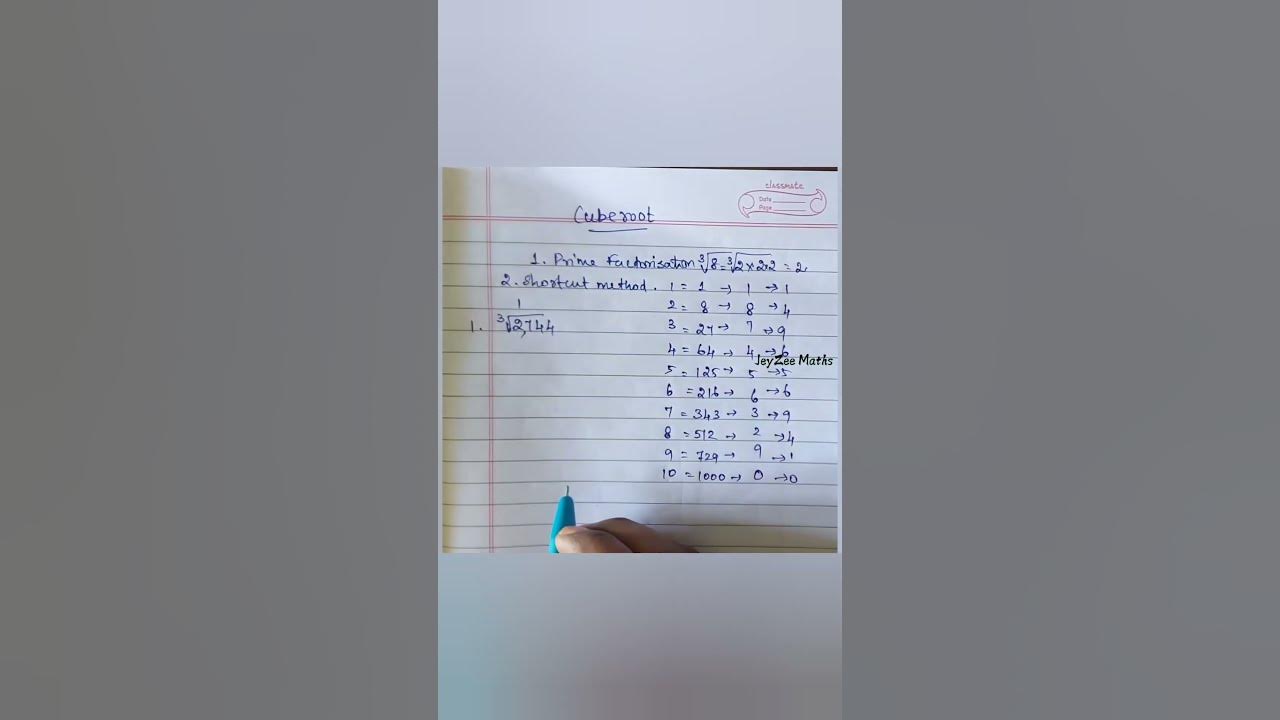 classmate
Date
Page
Cuberoot
1. Prime Factorisation ∛8 = ∛2×2×2 = 2
2. Shortcut method.
1 = 1 → 1 → 1
2 = 8 → 8 → 4
1
1. ∛2744
3 = 27 → 7 → 9
4 = 64 → 4 → 6
JeyZee Maths
5 = 125 → 5 → 5
6 = 216 → 6 → 6
7 = 343 → 3 → 9
8 = 512 → 2 → 4
9 = 729 → 9 → 1
10 = 1000 → 0 → 0